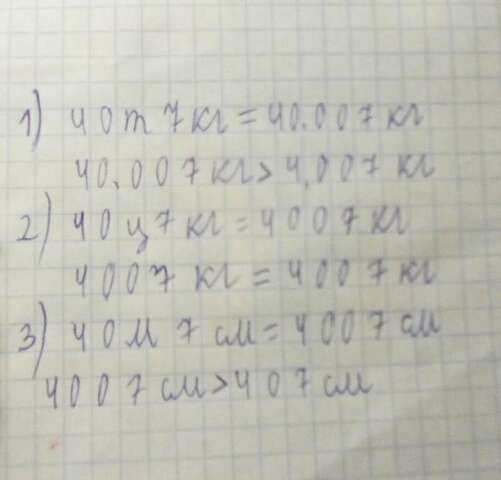 1) 40 т 7 кг = 40.007 кг
40.007 кг > 4.007 кг
2) 40 ц 7 кг = 4007 кг
4007 кг = 4007 кг
3) 40 м 7 см = 4007 см
4007 см > 407 см